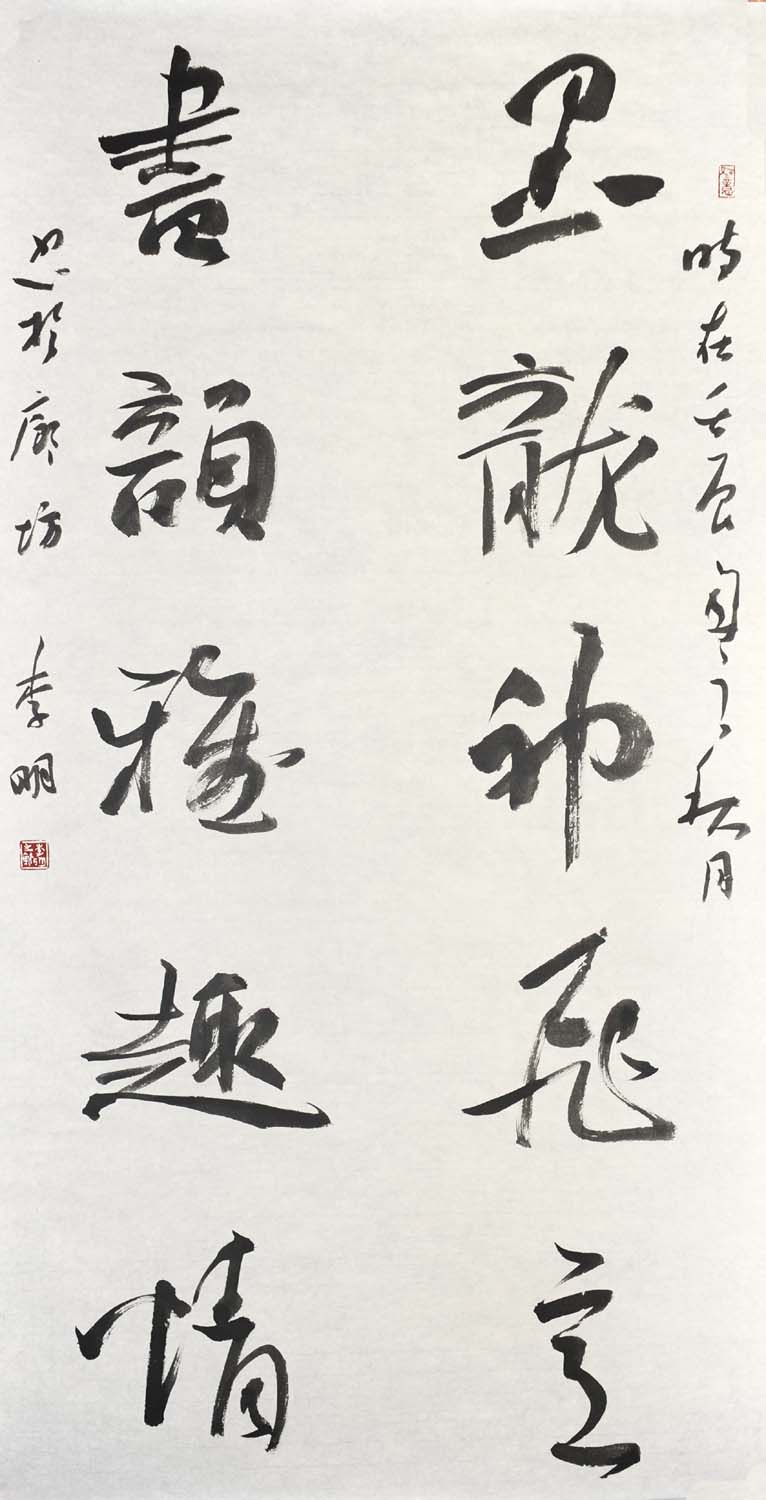 時在壬辰秋月
墨龍神飛意
書韻雅趣情
於廊坊 李明